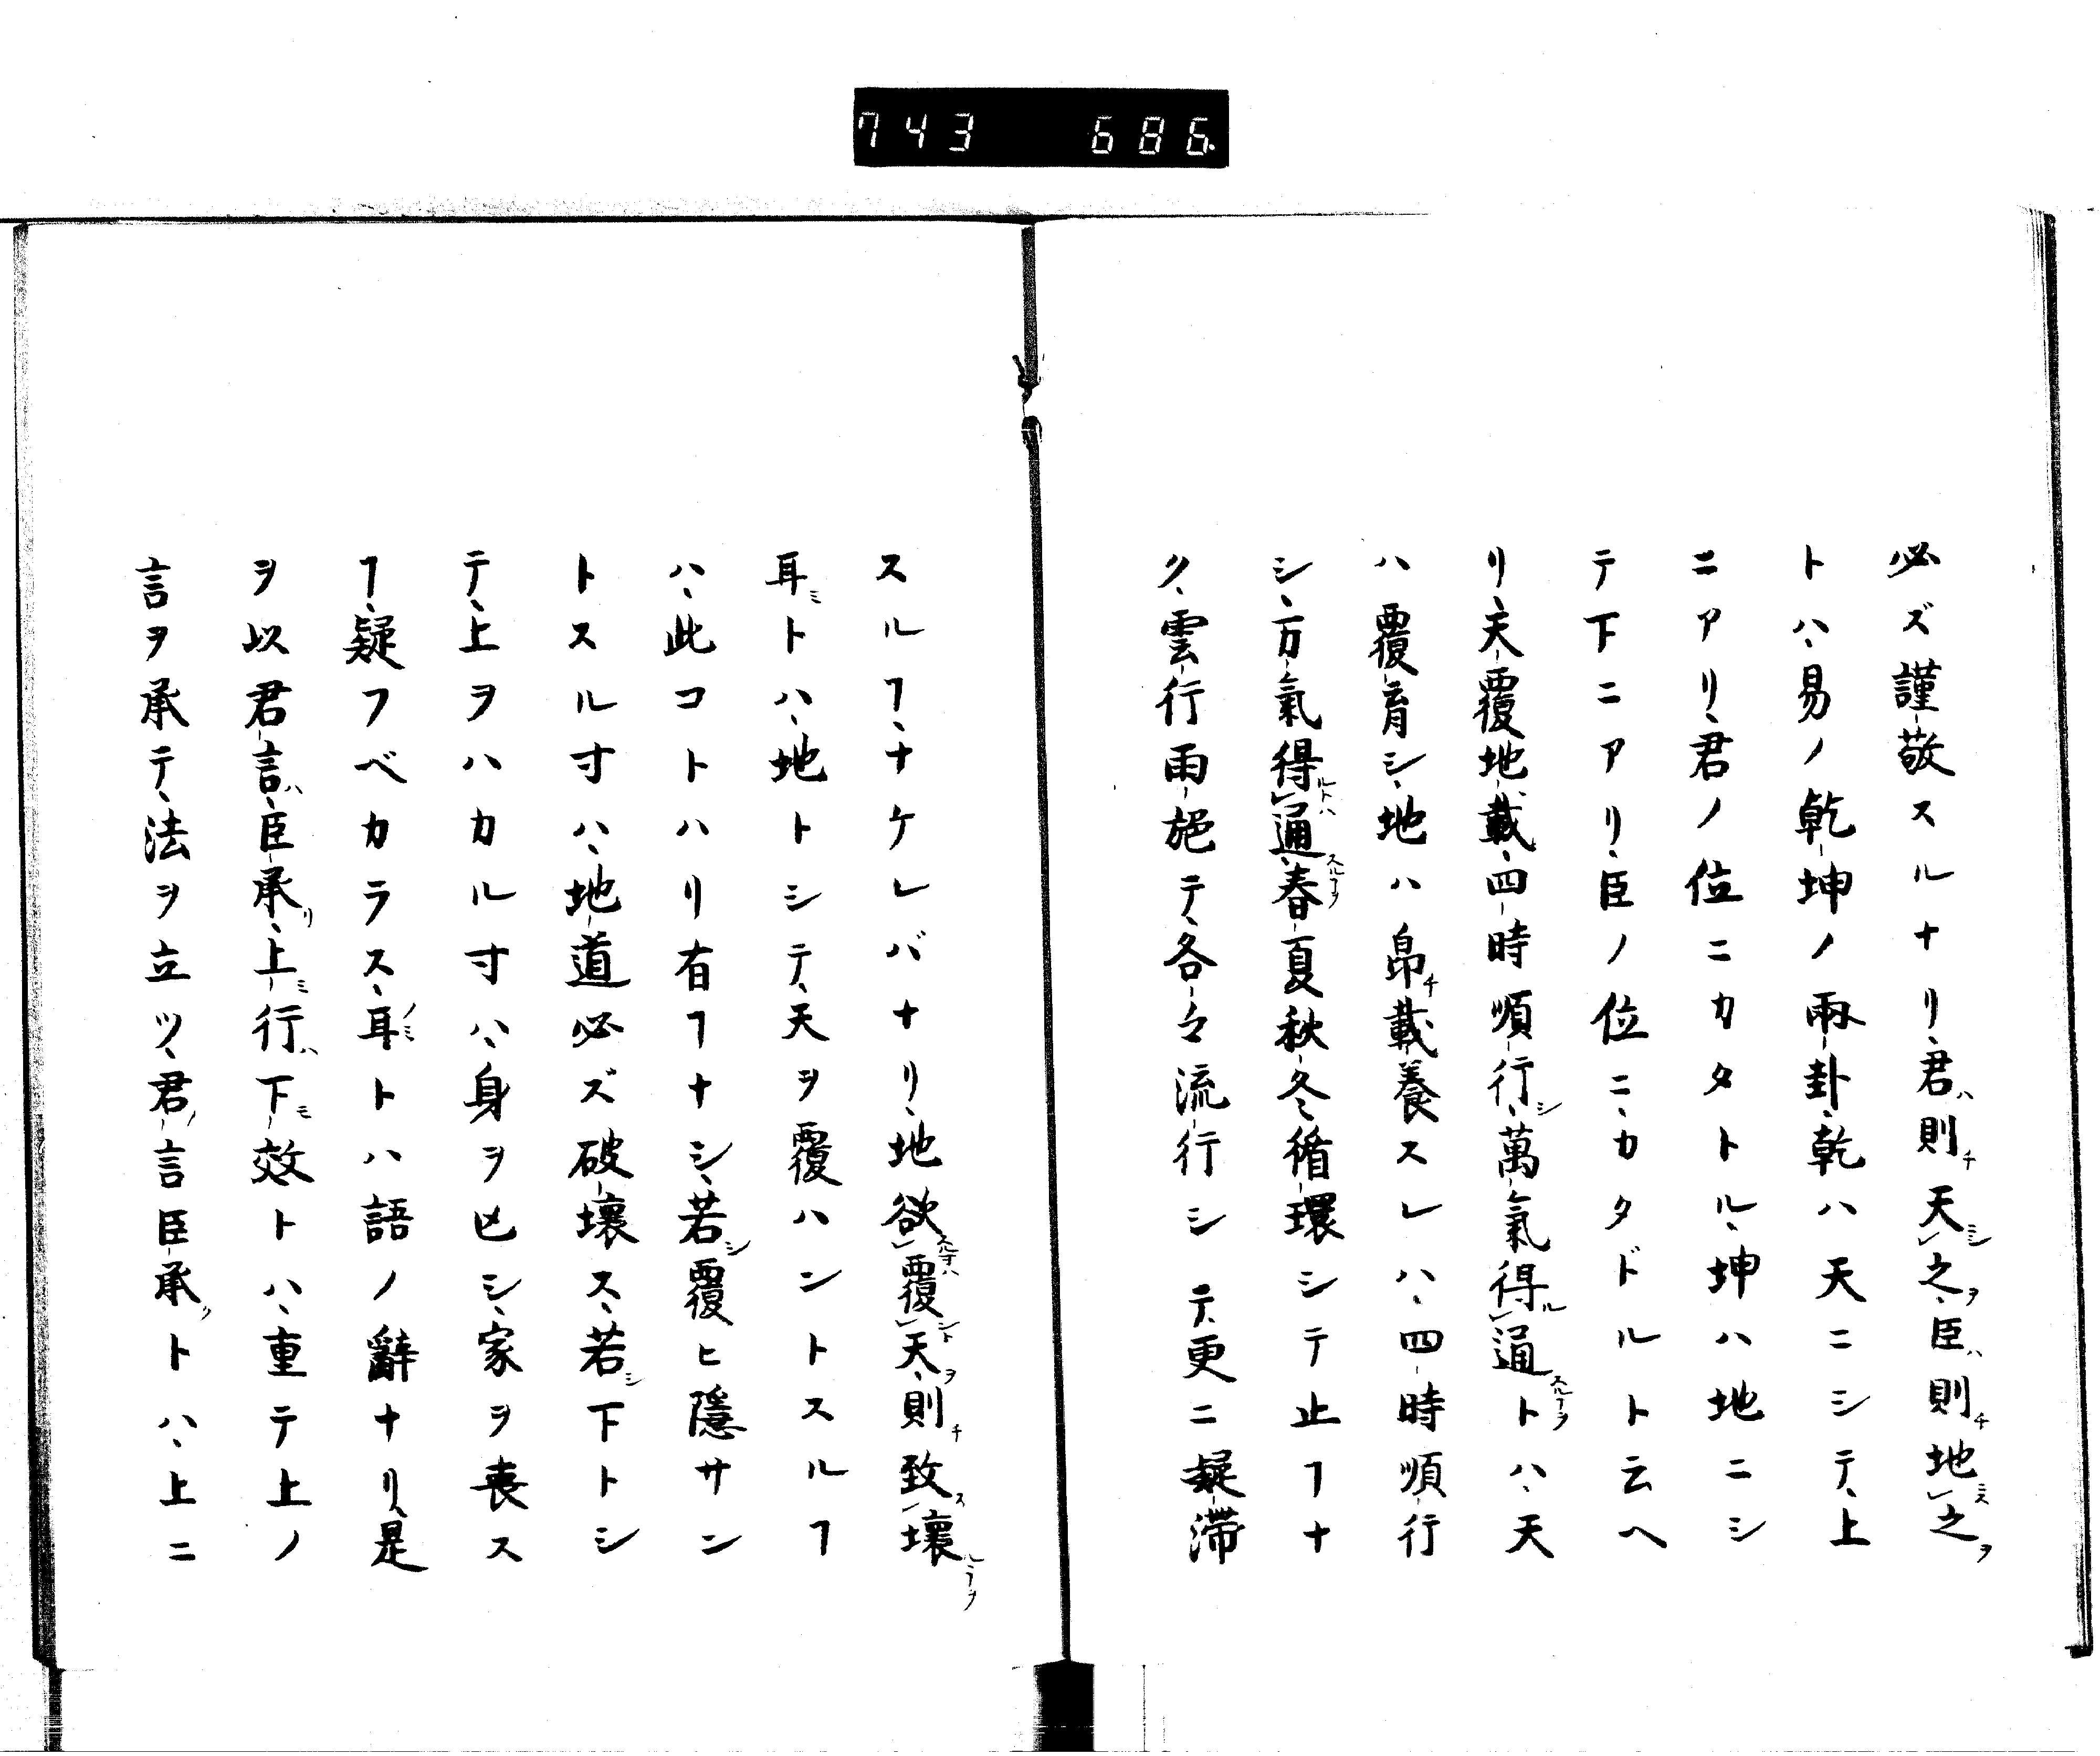 743 686
必ズ謹敬スルナリ、君ハ則チ天レ之ヲ、臣ハ則チ地レ之ヲ
トハ、易ノ乾坤ノ兩卦、乾ハ天ニシテ、上
ニアリ、君ノ位ニカタトル、坤ハ地ニシ
テ下ニアリ、臣ノ位ニ、カタドルト云ヘ
リ、天覆地載、四時順行シ、萬氣得ルレ通スルヿヲトハ、天
ハ覆育シ、地ハ帛チ載養スレハ、四時順行
シ、万氣得ルトハレ通スルヿヲ、春夏秋冬循環シテ止ヿナ
ク、雲行雨施テ、各々流行シテ、更ニ凝滯
スルヿ、ナケレバナリ、地欲スル寸ハレ覆ントレ天ヲ、則チ致スレ壞ルヽヿヲ
耳ミトハ、地トシテ、天ヲ覆ハントスルヿ
ハ、此コトハリ有ヿナシ、若シ覆ヒ隱サン
トスル寸ハ、地道必ズ破壞ス、若シ下トシ
テ、上ヲハカル寸ハ、身ヲ亡シ、家ヲ喪ス
ヿ、疑フベカラス、耳ノミトハ語ノ辭ナリ、是
ヲ以君言ハ、臣承リ、上ミ行ハ、下モ效トハ、重テ上ノ
言ヲ承テ、法ヲ立ツ、君ノ言臣承クトハ、上ニ